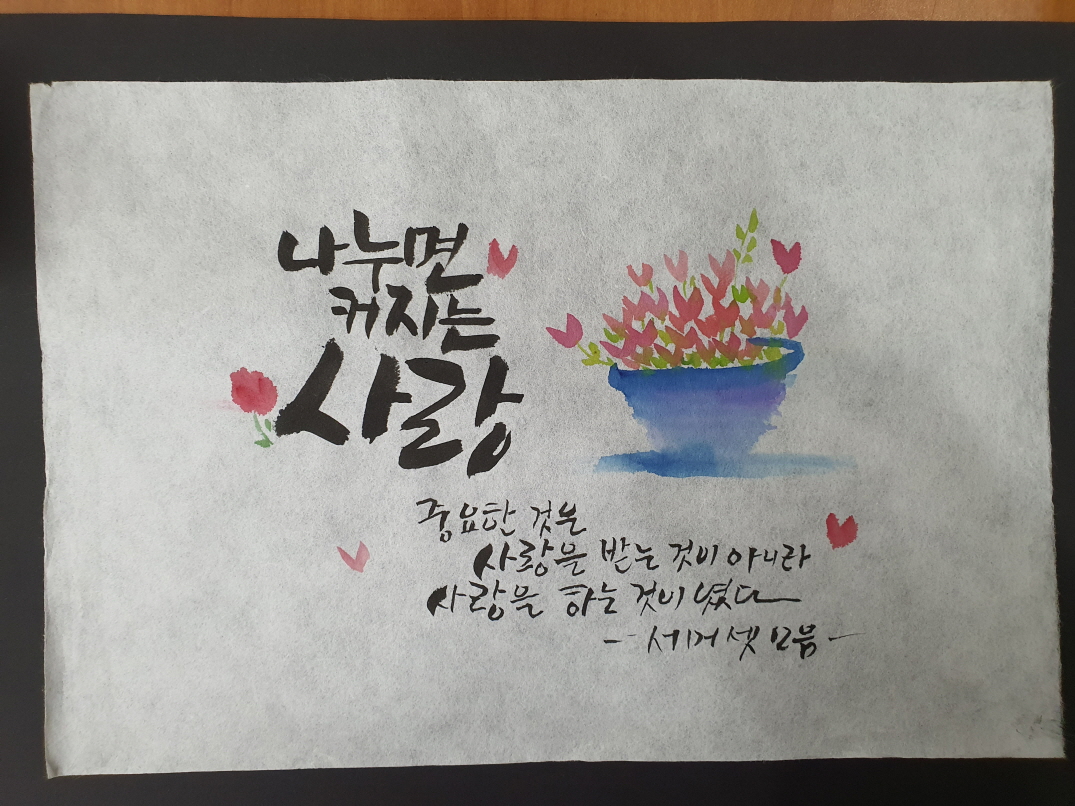 나누면
커지는
사랑
중요한 것은
사랑을 받는 것이 아니라
사랑을 하는 것이 였다
- 서머셋 모음 -